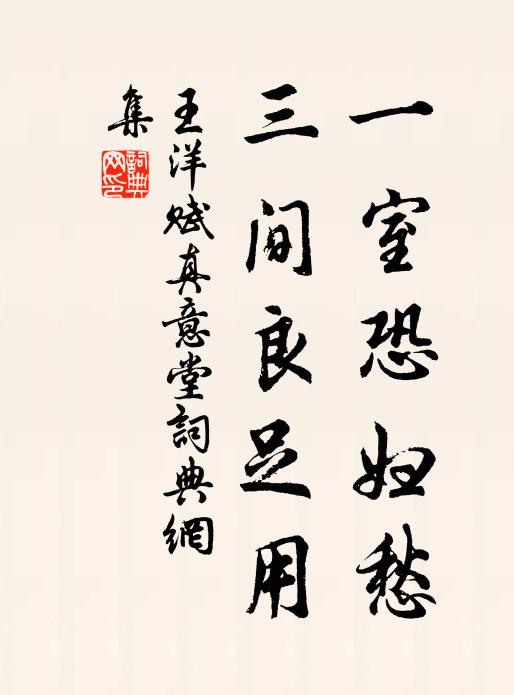 一室恐妇愁
三间良足用
王洋赋真意堂詞典網
集
詞典
网印